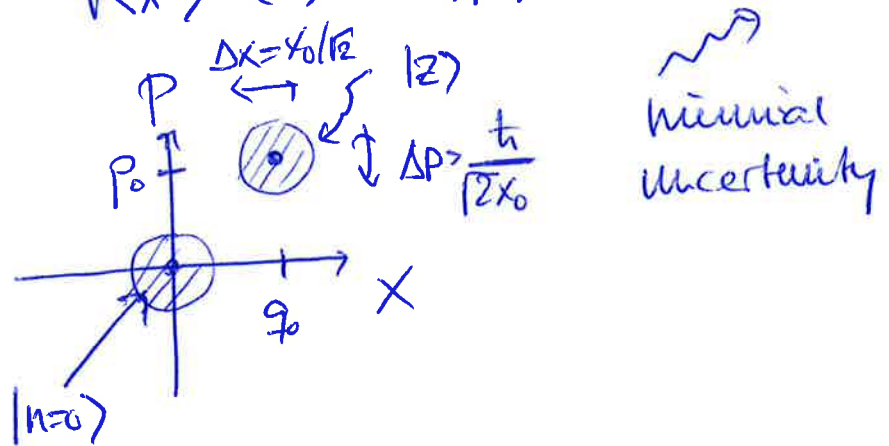 Δx=x₀/√2
|z⟩
P
p₀
ΔP=ħ/√2x₀
minimal
uncertainty
q₀
X
|n=0⟩